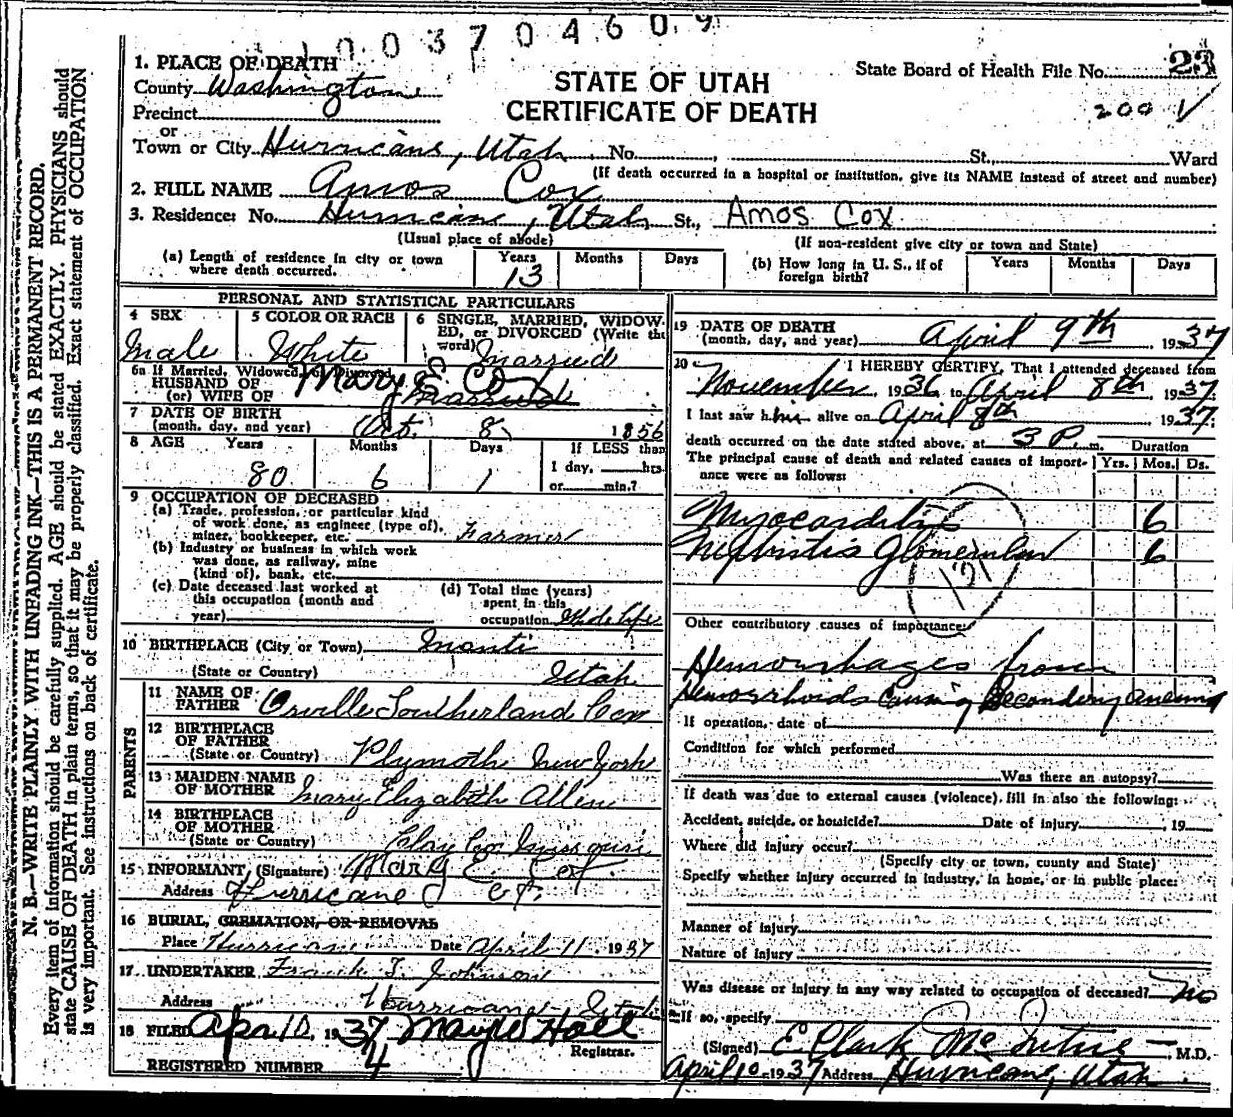 1003704609
23
State Board of Health File No.
2001
STATE OF UTAH
CERTIFICATE OF DEATH
N. B.—WRITE PLAINLY WITH UNFADING INK—THIS IS A PERMANENT RECORD.
Every item of information should be carefully supplied. AGE should be stated EXACTLY. PHYSICIANS should
state CAUSE OF DEATH in plain terms, so that it may be properly classified. Exact statement of OCCUPATION
is very important. See instructions on back of certificate.
1. PLACE OF DEATH
County Washington
Precinct
or
Town or City Hurricane, Utah No. St., Ward
(If death occurred in a hospital or institution, give its NAME instead of street and number)
2. FULL NAME Amos Cox
3. Residence: No. Hurricane, Utah St., Amos Cox
(Usual place of abode) (If non-resident give city or town and State)
(a) Length of residence in city or town where death occurred. Years 13 Months Days
(b) How long in U. S., if of foreign birth? Years Months Days
PERSONAL AND STATISTICAL PARTICULARS
4 SEX Male
5 COLOR OR RACE White
6 SINGLE, MARRIED, WIDOWED, or DIVORCED (Write the word) Married
6a If Married, Widowed, or Divorced
HUSBAND OF Mary E Cox
(or) WIFE OF Married
7 DATE OF BIRTH
(month, day, and year) Oct. 8, 1856
8 AGE Years 80 Months 6 Days 1
If LESS than
1 day, hrs.
or min.?
9 OCCUPATION OF DECEASED
(a) Trade, profession, or particular kind
of work done, as engineer (type of),
miner, bookkeeper, etc. Farmer
(b) Industry or business in which work
was done, as railway, mine
(kind of), bank, etc.
(c) Date deceased last worked at
this occupation (month and
year)
(d) Total time (years)
spent in this
occupation
10 BIRTHPLACE (City or Town) Manti
(State or Country) Utah
PARENTS
11 NAME OF
FATHER Orville Southerland Cox
12 BIRTHPLACE
OF FATHER
(State or Country) Plymoth New York
13 MAIDEN NAME
OF MOTHER Mary Elizabeth Allen
14 BIRTHPLACE
OF MOTHER
(State or Country) Clay Co Missouri
15 INFORMANT (Signature) Mary E. Cox.
Address Hurricane Ut.
16 BURIAL, CREMATION, OR REMOVAL
Place Hurricane Date April 11, 1937
17 UNDERTAKER Frank T. Johnson
Address Hurricane Utah
18 FILED Apr 10, 1937 May W Hall
Registrar.
REGISTERED NUMBER 4
19 DATE OF DEATH
(month, day, and year) April 9th, 1937
20 I HEREBY CERTIFY, That I attended deceased from
November, 1936 to April 8th, 1937.
I last saw him alive on April 8th, 1937;
death occurred on the date stated above, at 3 P. m. Duration
The principal cause of death and related causes of importance were as follows: Yrs. Mos. Ds.
Myocarditis 6
Nephritis glomerular 6
131
Other contributory causes of importance:
Hemorrhages from
Hemorrhoids Causing Secondary anemia
If operation, date of
Condition for which performed
Was there an autopsy?
If death was due to external causes (violence), fill in also the following:
Accident, suicide, or homicide? Date of injury , 19
Where did injury occur?
(Specify city or town, county and State)
Specify whether injury occurred in industry, in home, or in public place:
Manner of injury
Nature of injury
Was disease or injury in any way related to occupation of deceased? No
If so, specify
(Signed) E Clark McIntire M.D.
April 10 1937 Address Hurricane, Utah.